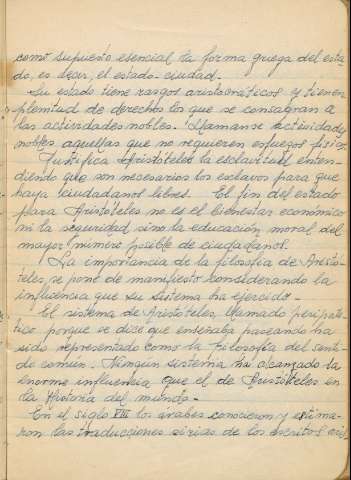 como supuesto esencial la forma griega del esta-
do, es decir, el estado-ciudad.-
Su estado tiene rasgos aristocráticos y tienen
plenitud de derechos los que se consagran a
las actividades nobles. Llamanse actividades
nobles aquellas que no requieren esfuerzo físico.
Justifica Aristóteles la esclavitud enten-
diendo que son necesarios los esclavos para que
haya ciudadanos libres. El fin del estado
para Aristóteles no es el bienestar económico
ni la seguridad sino la educación moral del
mayor número posible de ciudadanos.
La importancia de la filosofía de Aristó-
teles se pone de manifiesto considerando la
influencia que su sistema ha ejercido.-
El sistema de Aristóteles, llamado peripaté-
tico porque se dice que enseñaba paseando ha
sido representado como la filosofía del senti-
do común. Ningún sistema ha alcanzado la
enorme influencia que el de Aristóteles en
la Historia del mundo.-
En el siglo VIII los árabes conocieron y estima-
ron las traducciones sirias de los escritos aris